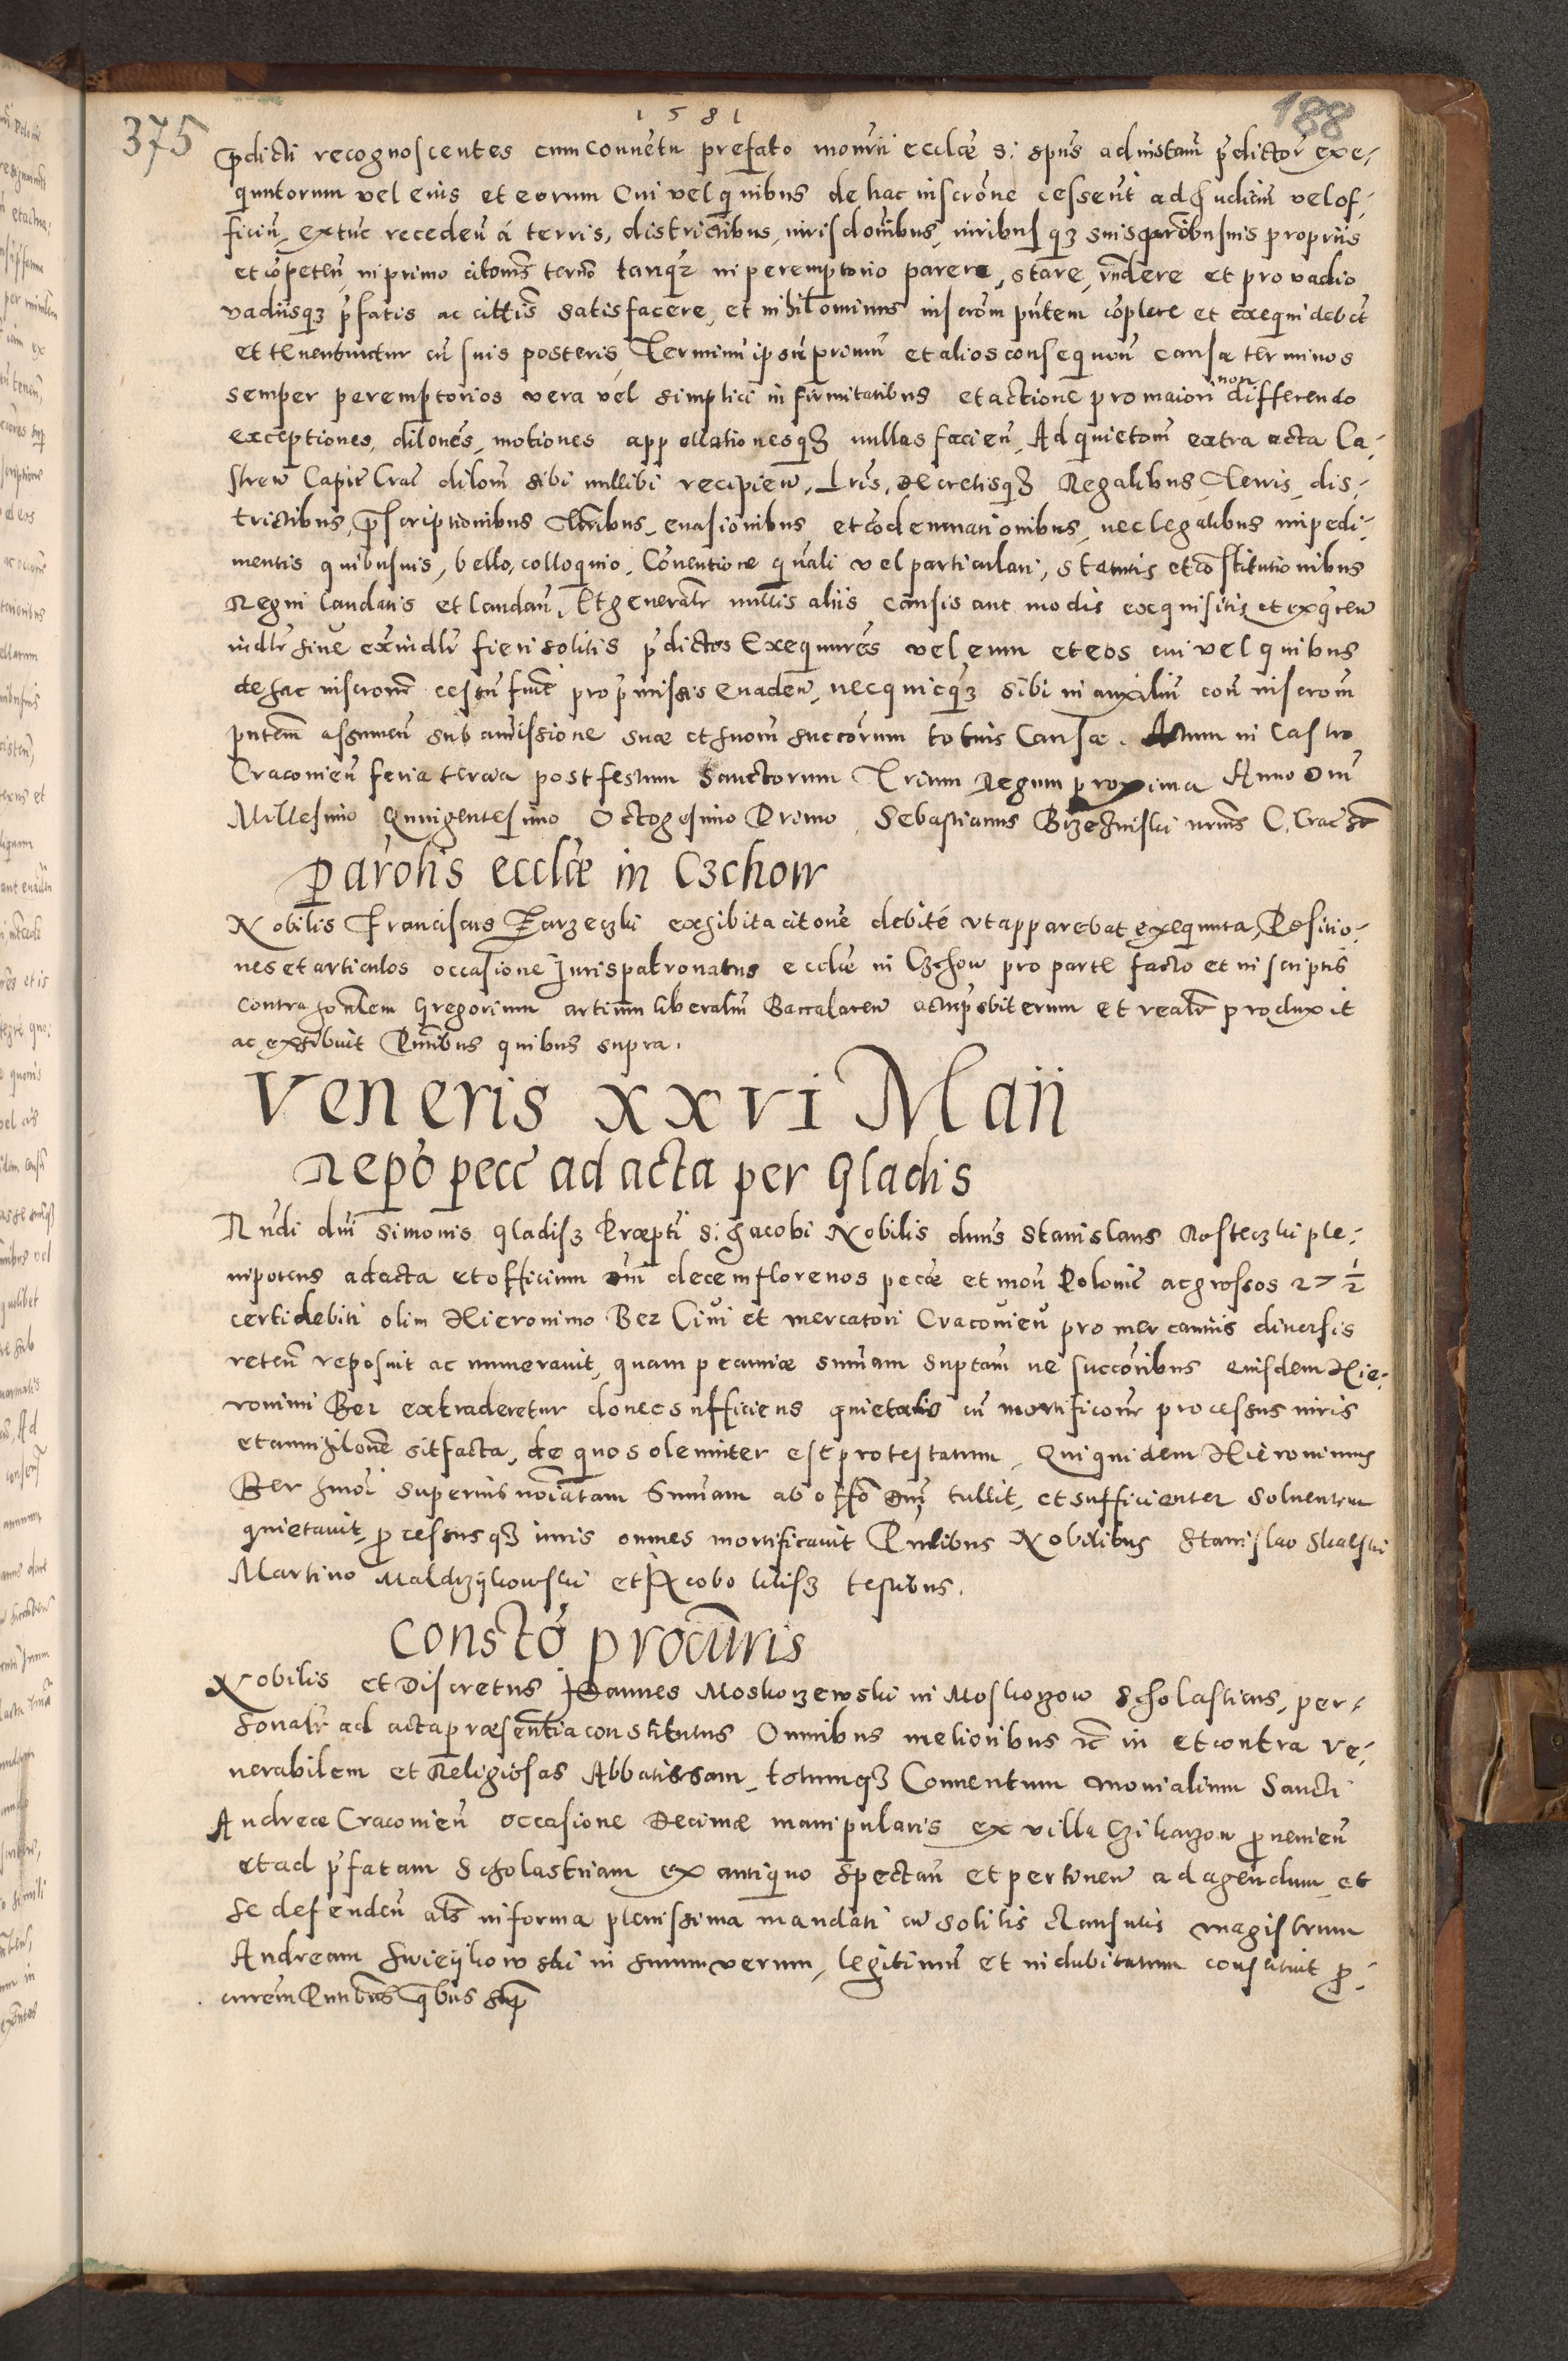 1581
375
188
p̱dicti recognoscentes cum conuẽtu prefato monrii ecclæ S: Spũs ad instam p̃dictor̃ exe-
quutorum vel eius et eorum Cui vel quibus de hac inscrõne cesserĩt ad Iudiciũ vel of-
ficiũ, extũc recedeñ á terris, districtibus, iurisdonibus, iuribusqʒ suis propriis
et cõpeteñ, in primo citonis termo tanqʒ in peremptorio parere, stare, rñdere et pro vadio
vadiisqʒ p̃fatis ac cittis satisfacere, et nihilominus inscrõm pñtem cõplere et exequi debet
et tenebuntur cũ suis posteris, Terminũ ipsũ primũ et alios consequeñ causæ terminos
semper peremptorios vera vel simplici infirmitatibus et actione pro maiori non differendo
exceptiones, dilones, motiones appellationesqʒ nullas facieñ, Ad quietom extra acta Ca-
streñ Capit Crac dilom sibi nullibi recipieñ, Lris, decretisqʒ Regalibus, Terris, dis-
trictibus, p̱scriptionibus, euasionibus et cõdemnationibus, nec legalibus impedi-
mentis quibusuis, bello, colloquio, Conuentione gñali vel particulari, statutis et cõstitutionibus
Regni laudatis et laudañ, Et generalr nullis aliis causis aut modis exquisitis et exq̃reñ
iudlr siue exiudlr fieri solitis p̃dictos Exequutres vel eum et eos cui vel quibus
de hac inscrone cessũ fuit pro p̃missis euadeñ, nec quicqʒ sibi in auxiliũ coñ inscrom
pñtem assumeñ sub amissione suæ et suor̃ succorum totius Causæ. Actum in Castro
Cracovieñ feria tercia post festum Sanctorum Trium Regum proxima Anno Dnĩ
Millesimo Quingentesimo Octogesimo Primo,
parohis ecclæ in Czchow
Nobilis Franciscus Zarzeczki exhibita citone debité vt apparebat exequuta, Positio-
nes et articulos occasione Iurispatronatus ecclæ in Czchow pro parte facto et in scriptis
contra honlem Gregorium artium liberaliũ Baccalareũ actu p̃sbiterum et realr produxit
ac exhibuit Pñtibus quibus supra.
Veneris xxvi Maii
Repo pecc ad acta per Gladis
Rñdi dnĩ Simonis Gladisz Præpti S: Iacobi Nobilis dnũs Stanislaus Rosteczki ple-
nipotens ad acta et officium dnĩ decem florenos pecæ et moñ Polonic ac grossos 27 ½
certi debiti olim Hieronimo Ber Ciui et mercatori Cracouieñ pro mercantiis diuersis
reteñ reposuit ac numerauit, quam pecuniæ sum̃am suptam ne succoribus eiusdem Hie-
ronimi Ber extraderetur donec sufficiens quietatio cũ mortificone processus iuris
et annihilone sit facta, de quo solemniter est protestatum, Qui quidem Hieronimus
Ber hmoi superius noiatam Sum̃am ab offo dnĩ tullit, et sufficienter soluentem
quietauit, p̱cessusqʒ iuris omnes mortificauit Pñtibus Nobilibus Stanislao Skalski
Martino Maldrzijkowski et Iacobo kilisz testibus.
Constó procuris
Nobilis et Discretus Ioannes Moskorzewski in Moskorzow Scholasticus, per-
sonalr ad acta præsentia constitutus Omnibus melioribus rc in et contra Ve-
nerabilem et Religiosas Abbatissam, totumqʒ Conuentum Monialium Sancti
Andreæ Cracouieñ occasione Decimæ manipularis ex villa Czikarzow p̱uenieñ
et ad p̃fatam Scholastriam ex antiquo spectañ et pertineñ ad agendum et
se defendeñ als in forma plenissima mandati cũ solitis clausulis magistrum
Andream in suum verum, legitimũ et indubitatum constituit p̱-
curem Pñtibus q̃bus sup̱